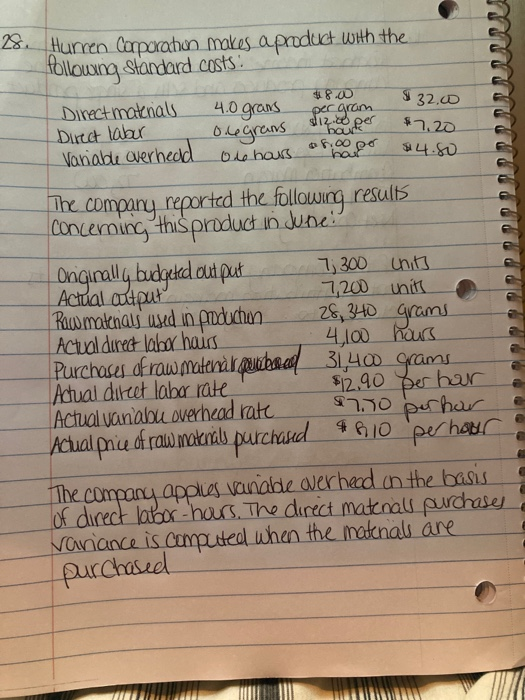 28. Hurren Corporation makes a product with the
following standard costs:
Direct materials 4.0 grams $8.00 per gram $32.00
Direct labor 0.6 grams $12.00 per hour $7.20
Variable overhead 0.6 hours $8.00 per hour $4.80
The company reported the following results
concerning this product in June:
Originally budgeted output 7,300 units
Actual output 7,200 units
Raw materials used in production 28,340 grams
Actual direct labor hours 4,100 hours
Purchases of raw materials 31,400 grams
Actual direct labor rate $12.90 per hour
Actual variable overhead rate $7.70 per hour
Actual price of raw materials purchased $8.10 per hour
The company applies variable overhead on the basis
of direct labor-hours. The direct materials purchases
variance is computed when the materials are
purchased